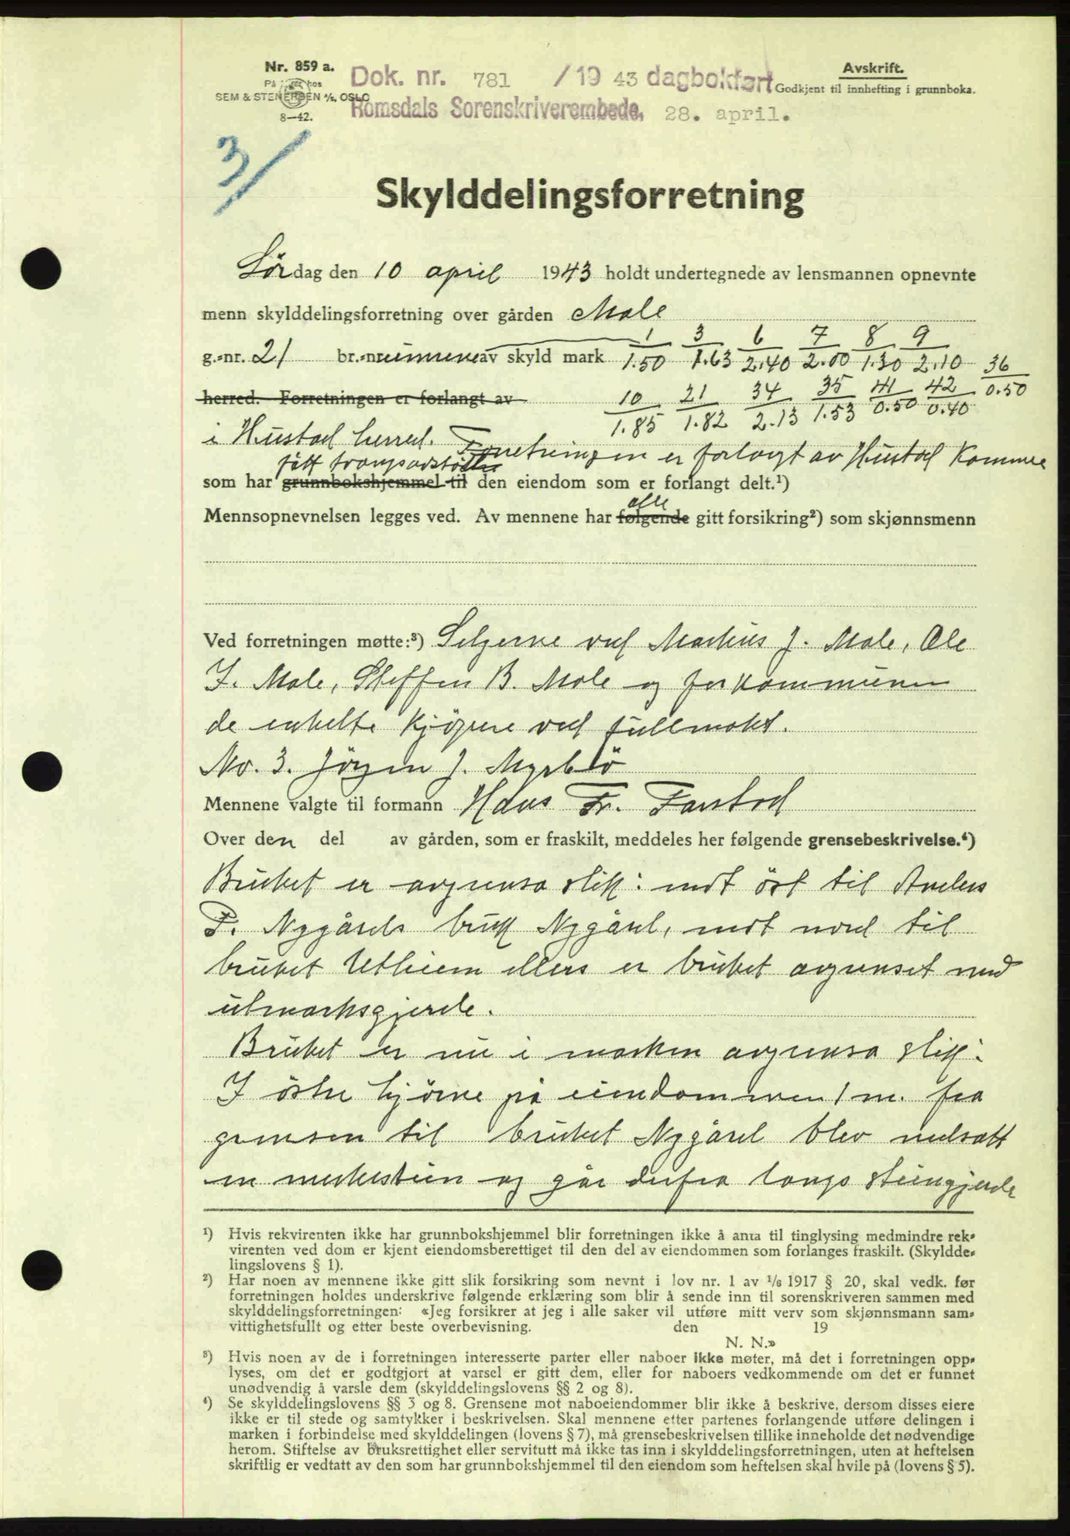 Nr. 859 a.
På lager hos
SEM & STENERSEN A/S, OSLO
8—42.
Dok. nr. 781 /19 43 dagbokført
Romsdals Sorenskriverembede, 28. april.
Avskrift.
Godkjent til innhefting i grunnboka.
3/
Skylddelingsforretning
Lördag den 10 april 1943 holdt undertegnede av lensmannen opnevnte
menn skylddelingsforretning over gården Male
g.-nr. 21 br.-nr. av skyld mark 1/1.50 3/1.63 6/2.40 7/2.00 8/1.30 9/2.10 36/0.50
herred. Forretningen er forlangt av 10/1.85 21/1.82 34/2.13 35/1.53 41/0.50 42/0.40
i Hustad herred. Forretningen er forlangt av Hustad Komme
fått
som har grunnbokshjemmel til den eiendom som er forlangt delt.¹)
alle
Mennsopnevnelsen legges ved. Av mennene har følgende gitt forsikring²) som skjønnsmenn
Ved forretningen møtte:³) Selgerne ved Markus J. Male, Ole
J. Male, Steffen B. Male og for kommunen
de enkelte kjöpere ved fullmakt.
No. 3. Jörgen J. Myrbö
Mennene valgte til formann Hans Fr. Farstad
Over den del av gården, som er fraskilt, meddeles her følgende grensebeskrivelse.⁴)
Bruket er avgrensa slik: mot öst til Anders
P. Nygårds bruk Nygård, mot nord til
bruket Utheim ellers er bruket avgrenset med
utmarksgjerde.
Bruket er nu i marken avgrensa slik:
I östre hjörne på eiendommen 1 m. fra
grensen til bruket Nygård blev nedsatt
en merkestein og går derfra langs steingjerde
¹) Hvis rekvirenten ikke har grunnbokshjemmel blir forretningen ikke å anta til tinglysing medmindre rek-
virenten ved dom er kjent eiendomsberettiget til den del av eiendommen som forlanges fraskilt. (Skyldde-
lingslovens § 1).
²) Har noen av mennene ikke gitt slik forsikring som nevnt i lov nr. 1 av 1/6 1917 § 20, skal vedk. før
forretningen holdes underskrive følgende erklæring som blir å sende inn til sorenskriveren sammen med
skylddelingsforretningen: «Jeg forsikrer at jeg i alle saker vil utføre mitt verv som skjønnsmann sam-
vittighetsfullt og etter beste overbevisning. den 19
N. N.»
³) Hvis noen av de i forretningen interesserte parter eller naboer ikke møter, må det i forretningen opp-
lyses, om det er godtgjort at varsel er gitt dem, eller for naboers vedkommende om det er funnet
unødvendig å varsle dem (skylddelingslovens §§ 2 og 8).
⁴) Se skylddelingslovens §§ 3 og 8. Grensene mot naboeiendommer blir ikke å beskrive, dersom disses eiere
ikke er til stede og samtykker i beskrivelsen. Skal mennene etter partenes forlangende utføre delingen i
marken i forbindelse med skylddelingen (lovens § 7), må grensebeskrivelsen tillike inneholde det nødvendige
herom. Stiftelse av bruksrettighet eller servitutt må ikke tas inn i skylddelingsforretningen, uten at heftelsen
skriftlig er vedtatt av den som har grunnbokshjemmel til den eiendom som heftelsen skal hvile på (lovens § 5).